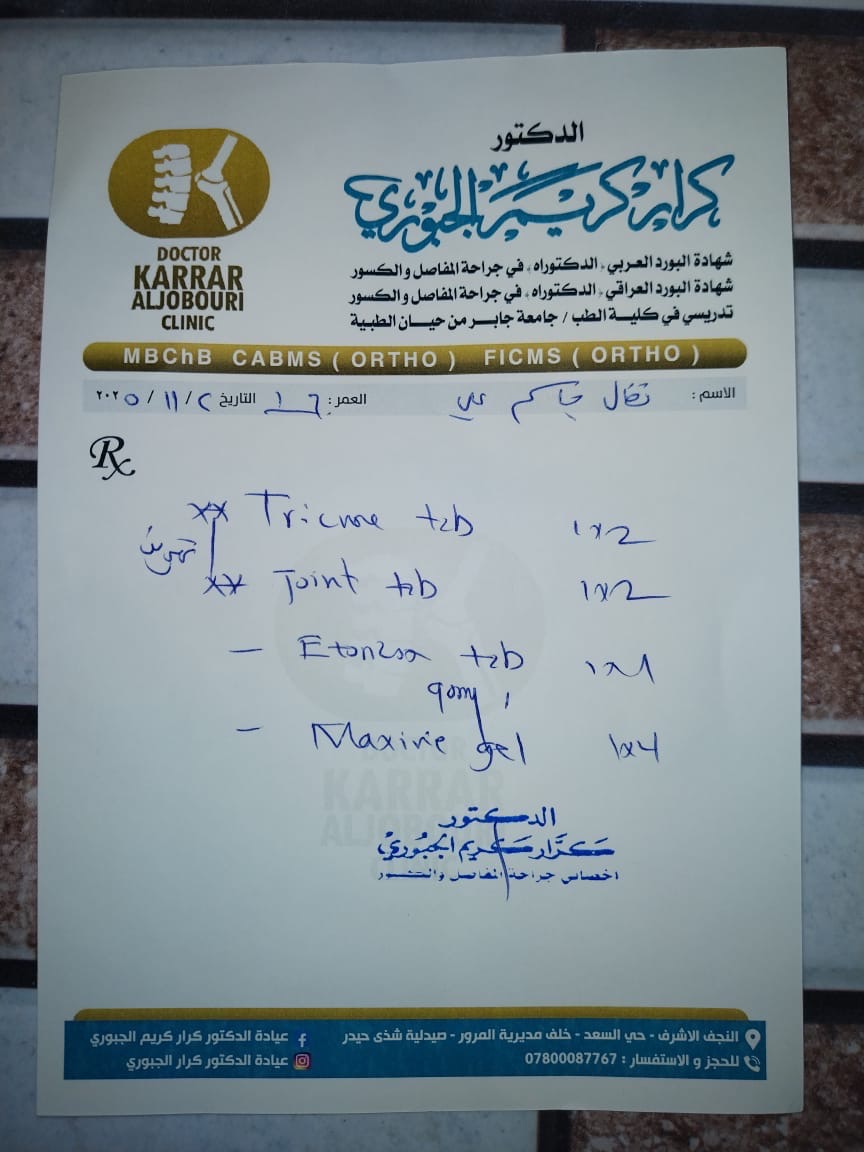 الدكتور
كرار كريم الجبوري
شهادة البورد العربي "الدكتوراه" في جراحة المفاصل والكسور
شهادة البورد العراقي "الدكتوراه" في جراحة المفاصل والكسور
تدريسي في كلية الطب / جامعة جابر من حيان الطبية
DOCTOR
KARRAR
ALJOBOURI
CLINIC
MBChB CABMS ( ORTHO ) FICMS ( ORTHO )
الاسم : جاسم العمر : التاريخ ٢ / ١١ / ٢٠٢٥
Rx
xx tab 1x2
xx Joint tab 1x2
- tab 1x1
90mg
- gel 1x4
DOCTOR
KARRAR
ALJOBOURI
الدكتور
كرار كريم الجبوري
اخصاصي جراحة المفاصل والكسور
النجف الاشرف - حي السعد - خلف مديرية المرور - صيدلية شذى حيدر
للحجز و الاستفسار : 07800087767
عيادة الدكتور كرار كريم الجبوري
عيادة الدكتور كرار الجبوري